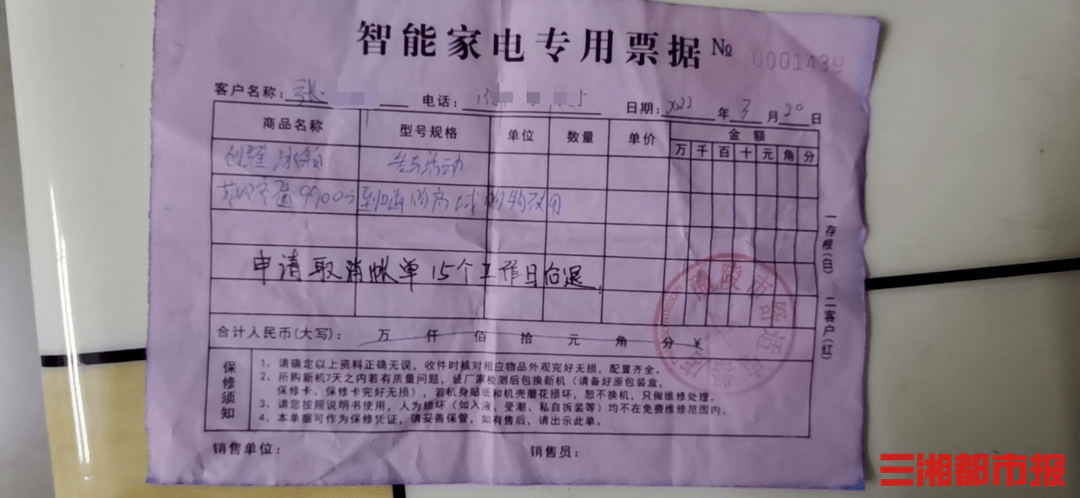 智能家电专用票据 № 0001439
客户名称：张 电话： 日期：2022年3月20日
商品名称 型号规格 单位 数量 单价 金额
万 千 百 十 元 角 分
冰箱 活动
9900元
申请取消账单15个工作日后退
合计人民币(大写)： 万 仟 佰 拾 元 角 分 ¥
保修须知
1、请确定以上资料正确无误，收件时核对相应物品外观完好无损，配置齐全。
2、所购新机7天之内若有质量问题，经厂家检测后包换新机（请备好原包装盒，
保修卡、保修卡完好无损），若机身贴纸和机壳磨花损坏，恕不换机，只做维修处理。
3、请您按照说明书使用，人为损坏（如入液、受潮、私自拆装等）均不在免费维修范围内。
4、本单据可作为保修凭证，请妥善保管，如有售后，请出示此单。
销售单位： 销售员：
一存根(白) 二客户(红)
醴陵市
三湘都市报